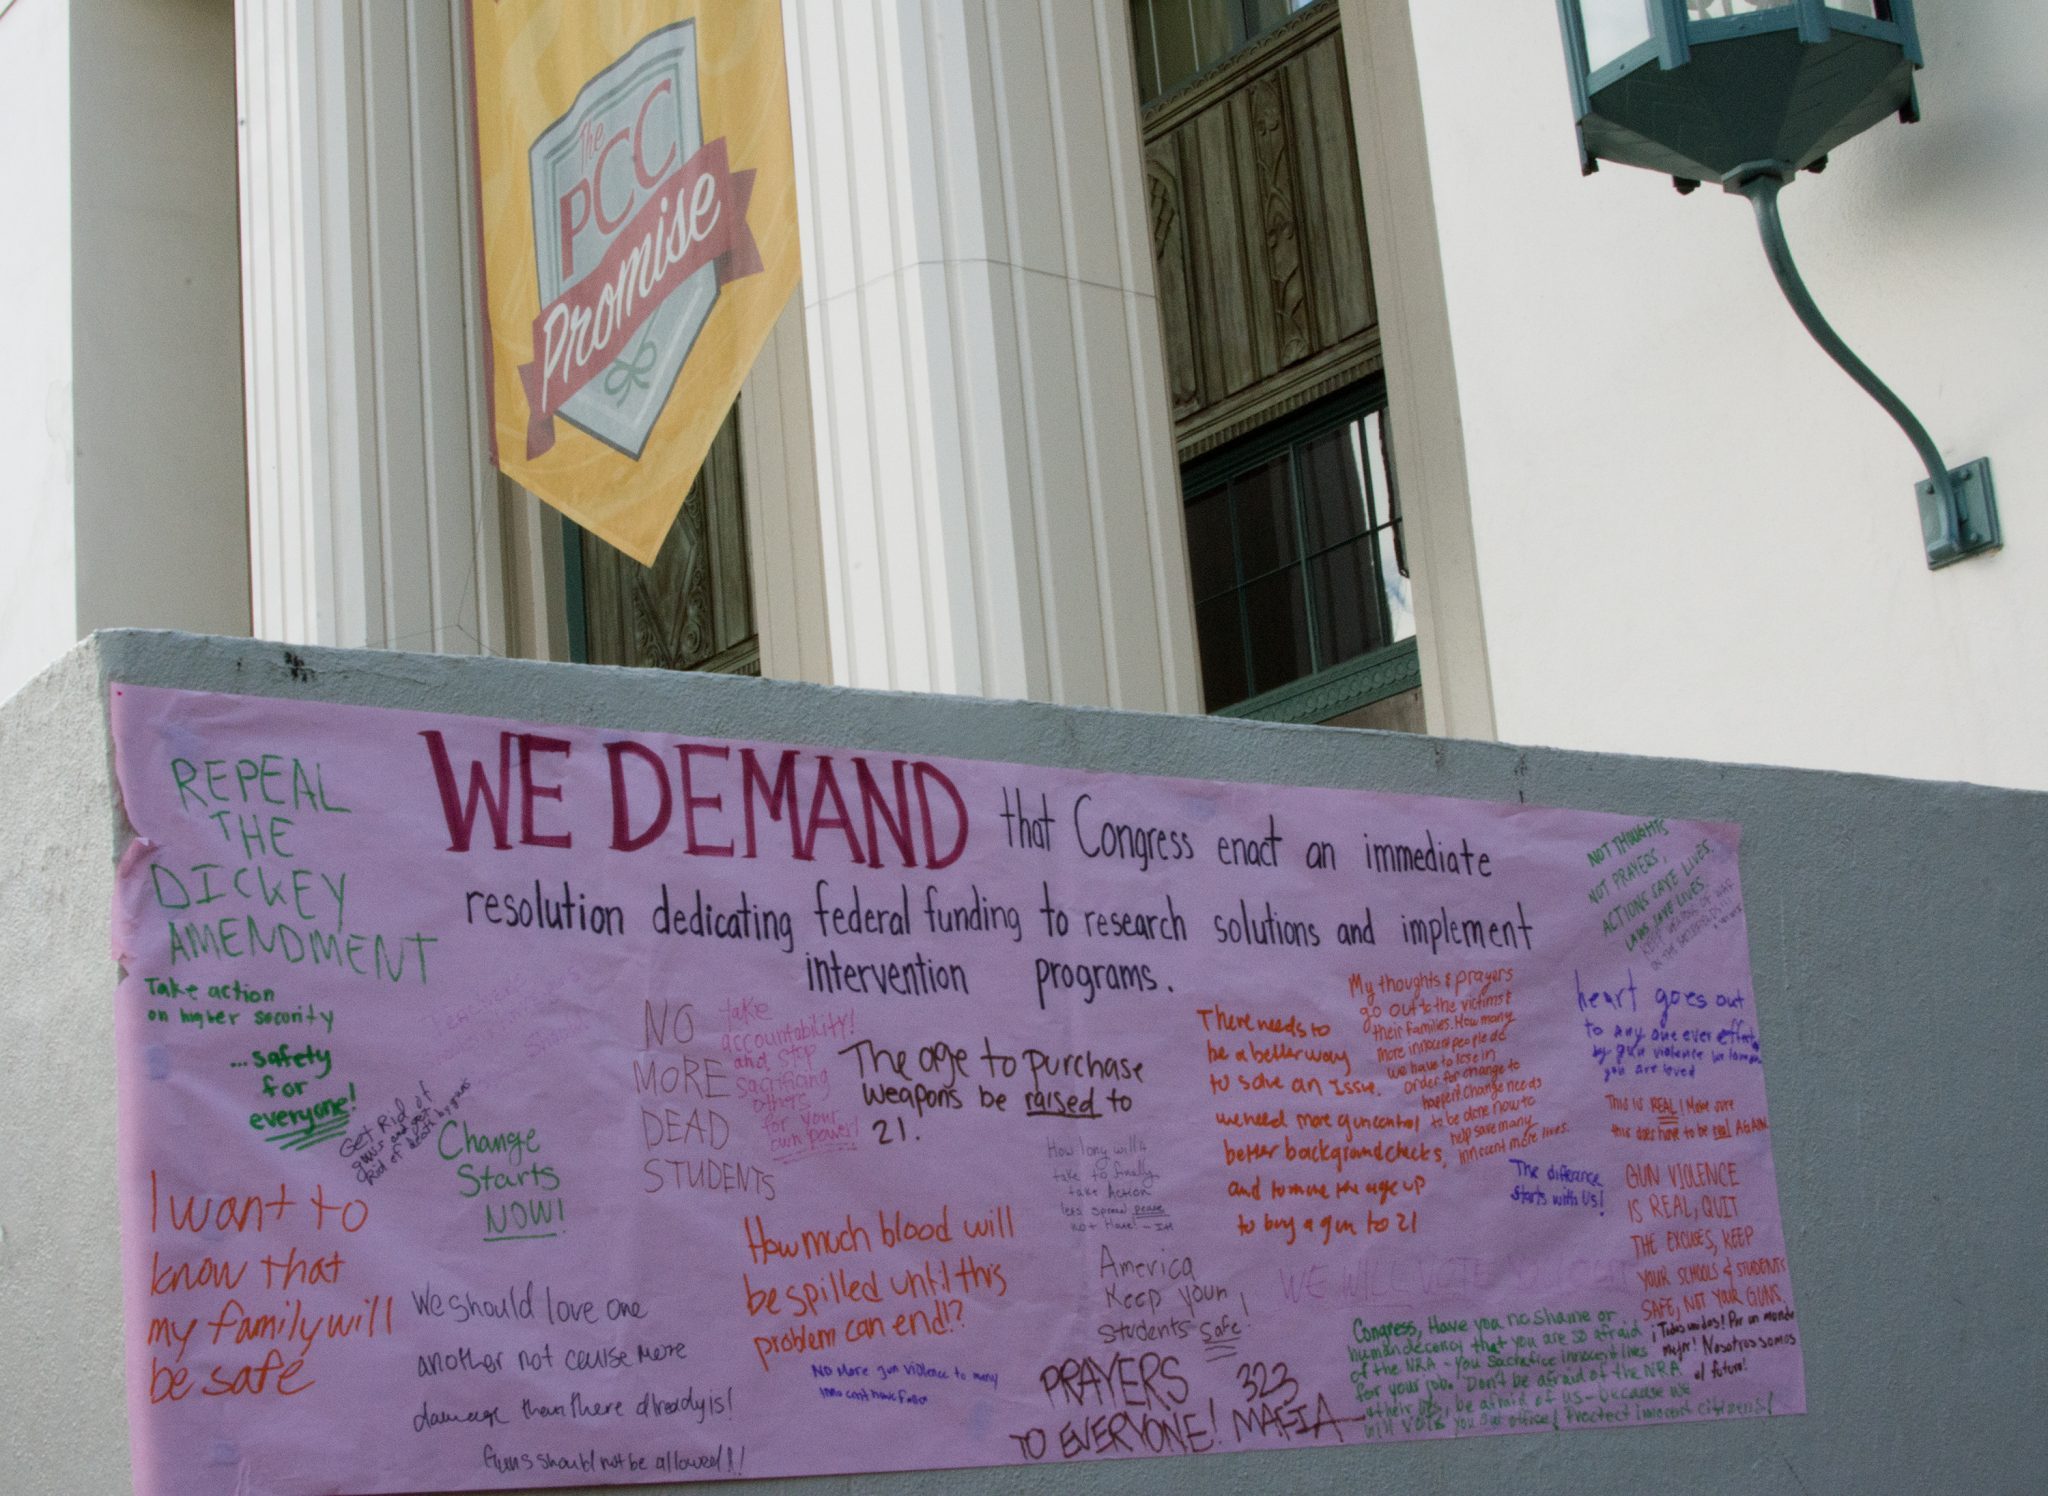 The
PCC
Promise
WE DEMAND that Congress enact an immediate
resolution dedicating federal funding to research solutions and implement
intervention programs.
REPEAL
THE
DICKEY
AMENDMENT
Take action
on higher security
...safety
for
everyone!
Get Rid of
guns and get
Rid of death by guns
Change
Starts
NOW!
I want to
know that
my family will
be safe
We should love one
another not cause more
damage than there already is!
Guns should not be allowed!!!
NO
MORE
DEAD
STUDENTS
take
accountability!
and stop
sacrificing
others
for your
own power!
The age to purchase
weapons be raised to
21.
How much blood will
be spilled until this
problem can end!?
No More gun violence to many
innocent have
How long will it
take to finally
take Action
less spread peace
not Hate! -
America
Keep your
students safe!
PRAYERS
TO EVERYONE!
323
MAFIA
There needs to
be a better way
to solve an issue.
we need more gun control
better background checks,
and to move the age up
to buy a gun to 21
My thoughts & prayers
go out to the victims &
their families. How many
more innocent people do
we have to lose in
order for change to
happen? Change needs
to be done now to
help save many
innocent more lives.
WE WILL VOTE
NOT THOUGHTS
NOT PRAYERS,
ACTIONS SAVE LIVES.
LAWS SAVE LIVES.
heart goes out
to any one ever
by gun violence
you are loved
This is REAL! Make sure
this does have to be real AGAIN
The difference
starts with Us!
GUN VIOLENCE
IS REAL, QUIT
THE EXCUSES, KEEP
YOUR SCHOOLS & STUDENTS
SAFE, NOT YOUR GUNS.
¡Todos unidos! Por un mundo
mejor! Nosotros somos
el futuro!
Congress, Have you no shame or
human decency that you are so afraid
of the NRA - you sacrifice innocent lives
for your job. Don't be afraid of the NRA
be afraid of us - because we
will vote you out office! Protect innocent citizens!